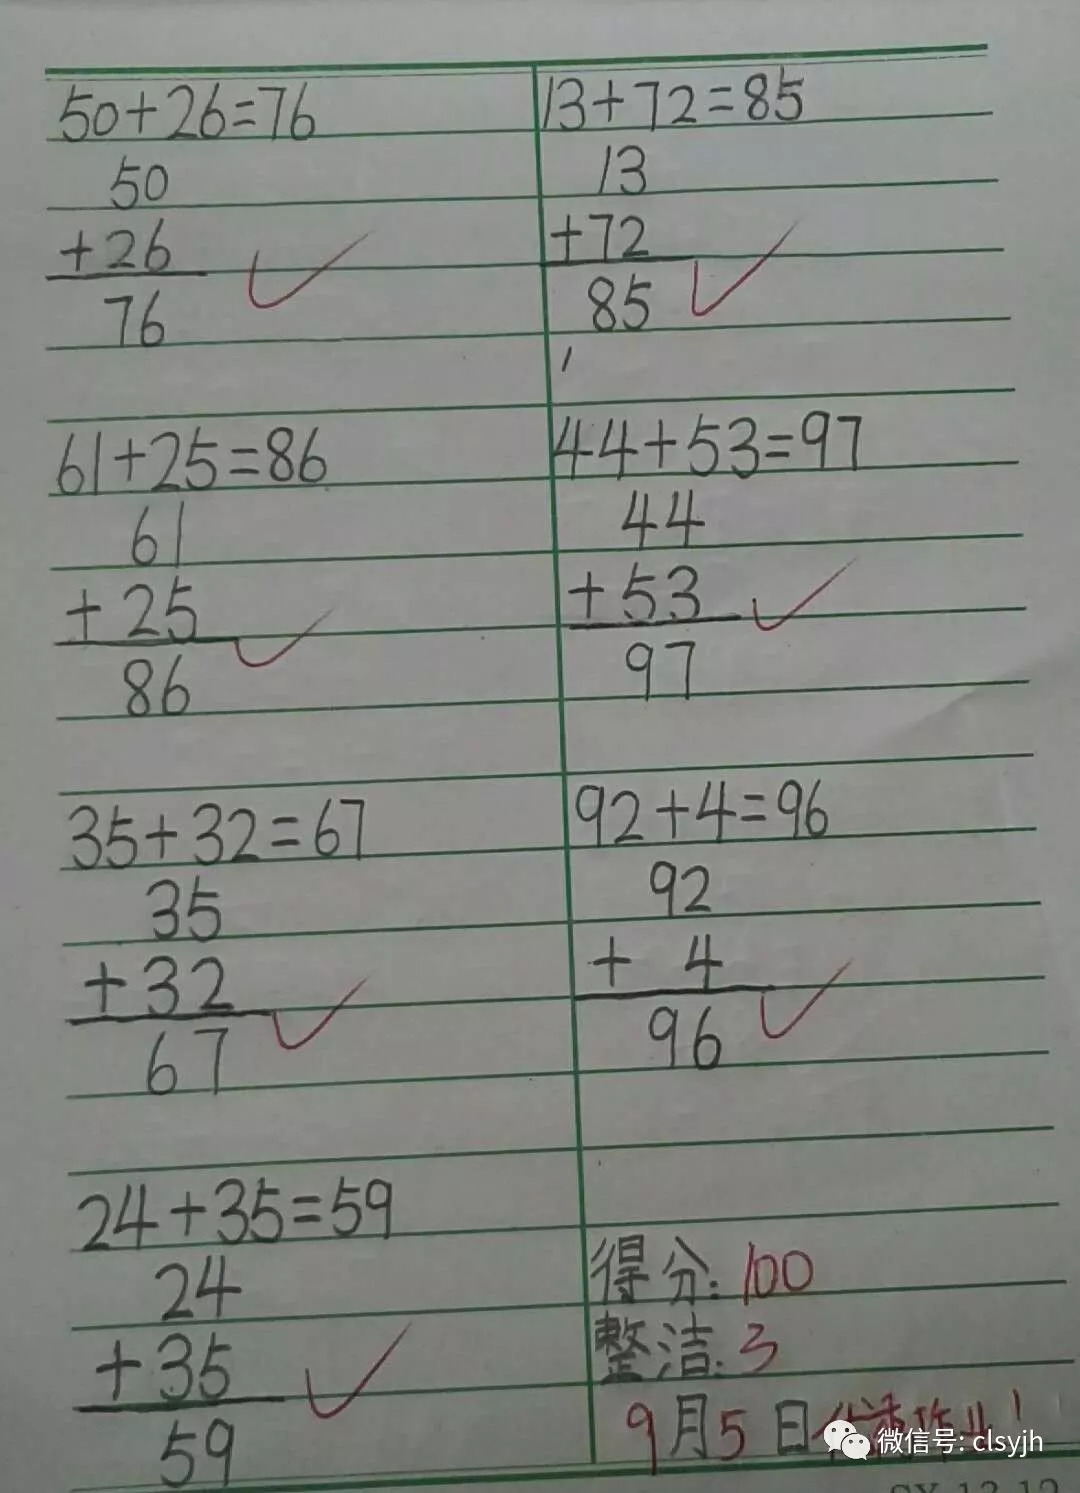 50+26=76
50
+26
76
61+25=86
61
+25
86
35+32=67
35
+32
67
24+35=59
24
+35
59
13+72=85
13
+72
85
44+53=97
44
+53
97
92+4=96
92
+ 4
96
得分:100
整洁:3
9月5日优秀作业!
微信号: clsyjh